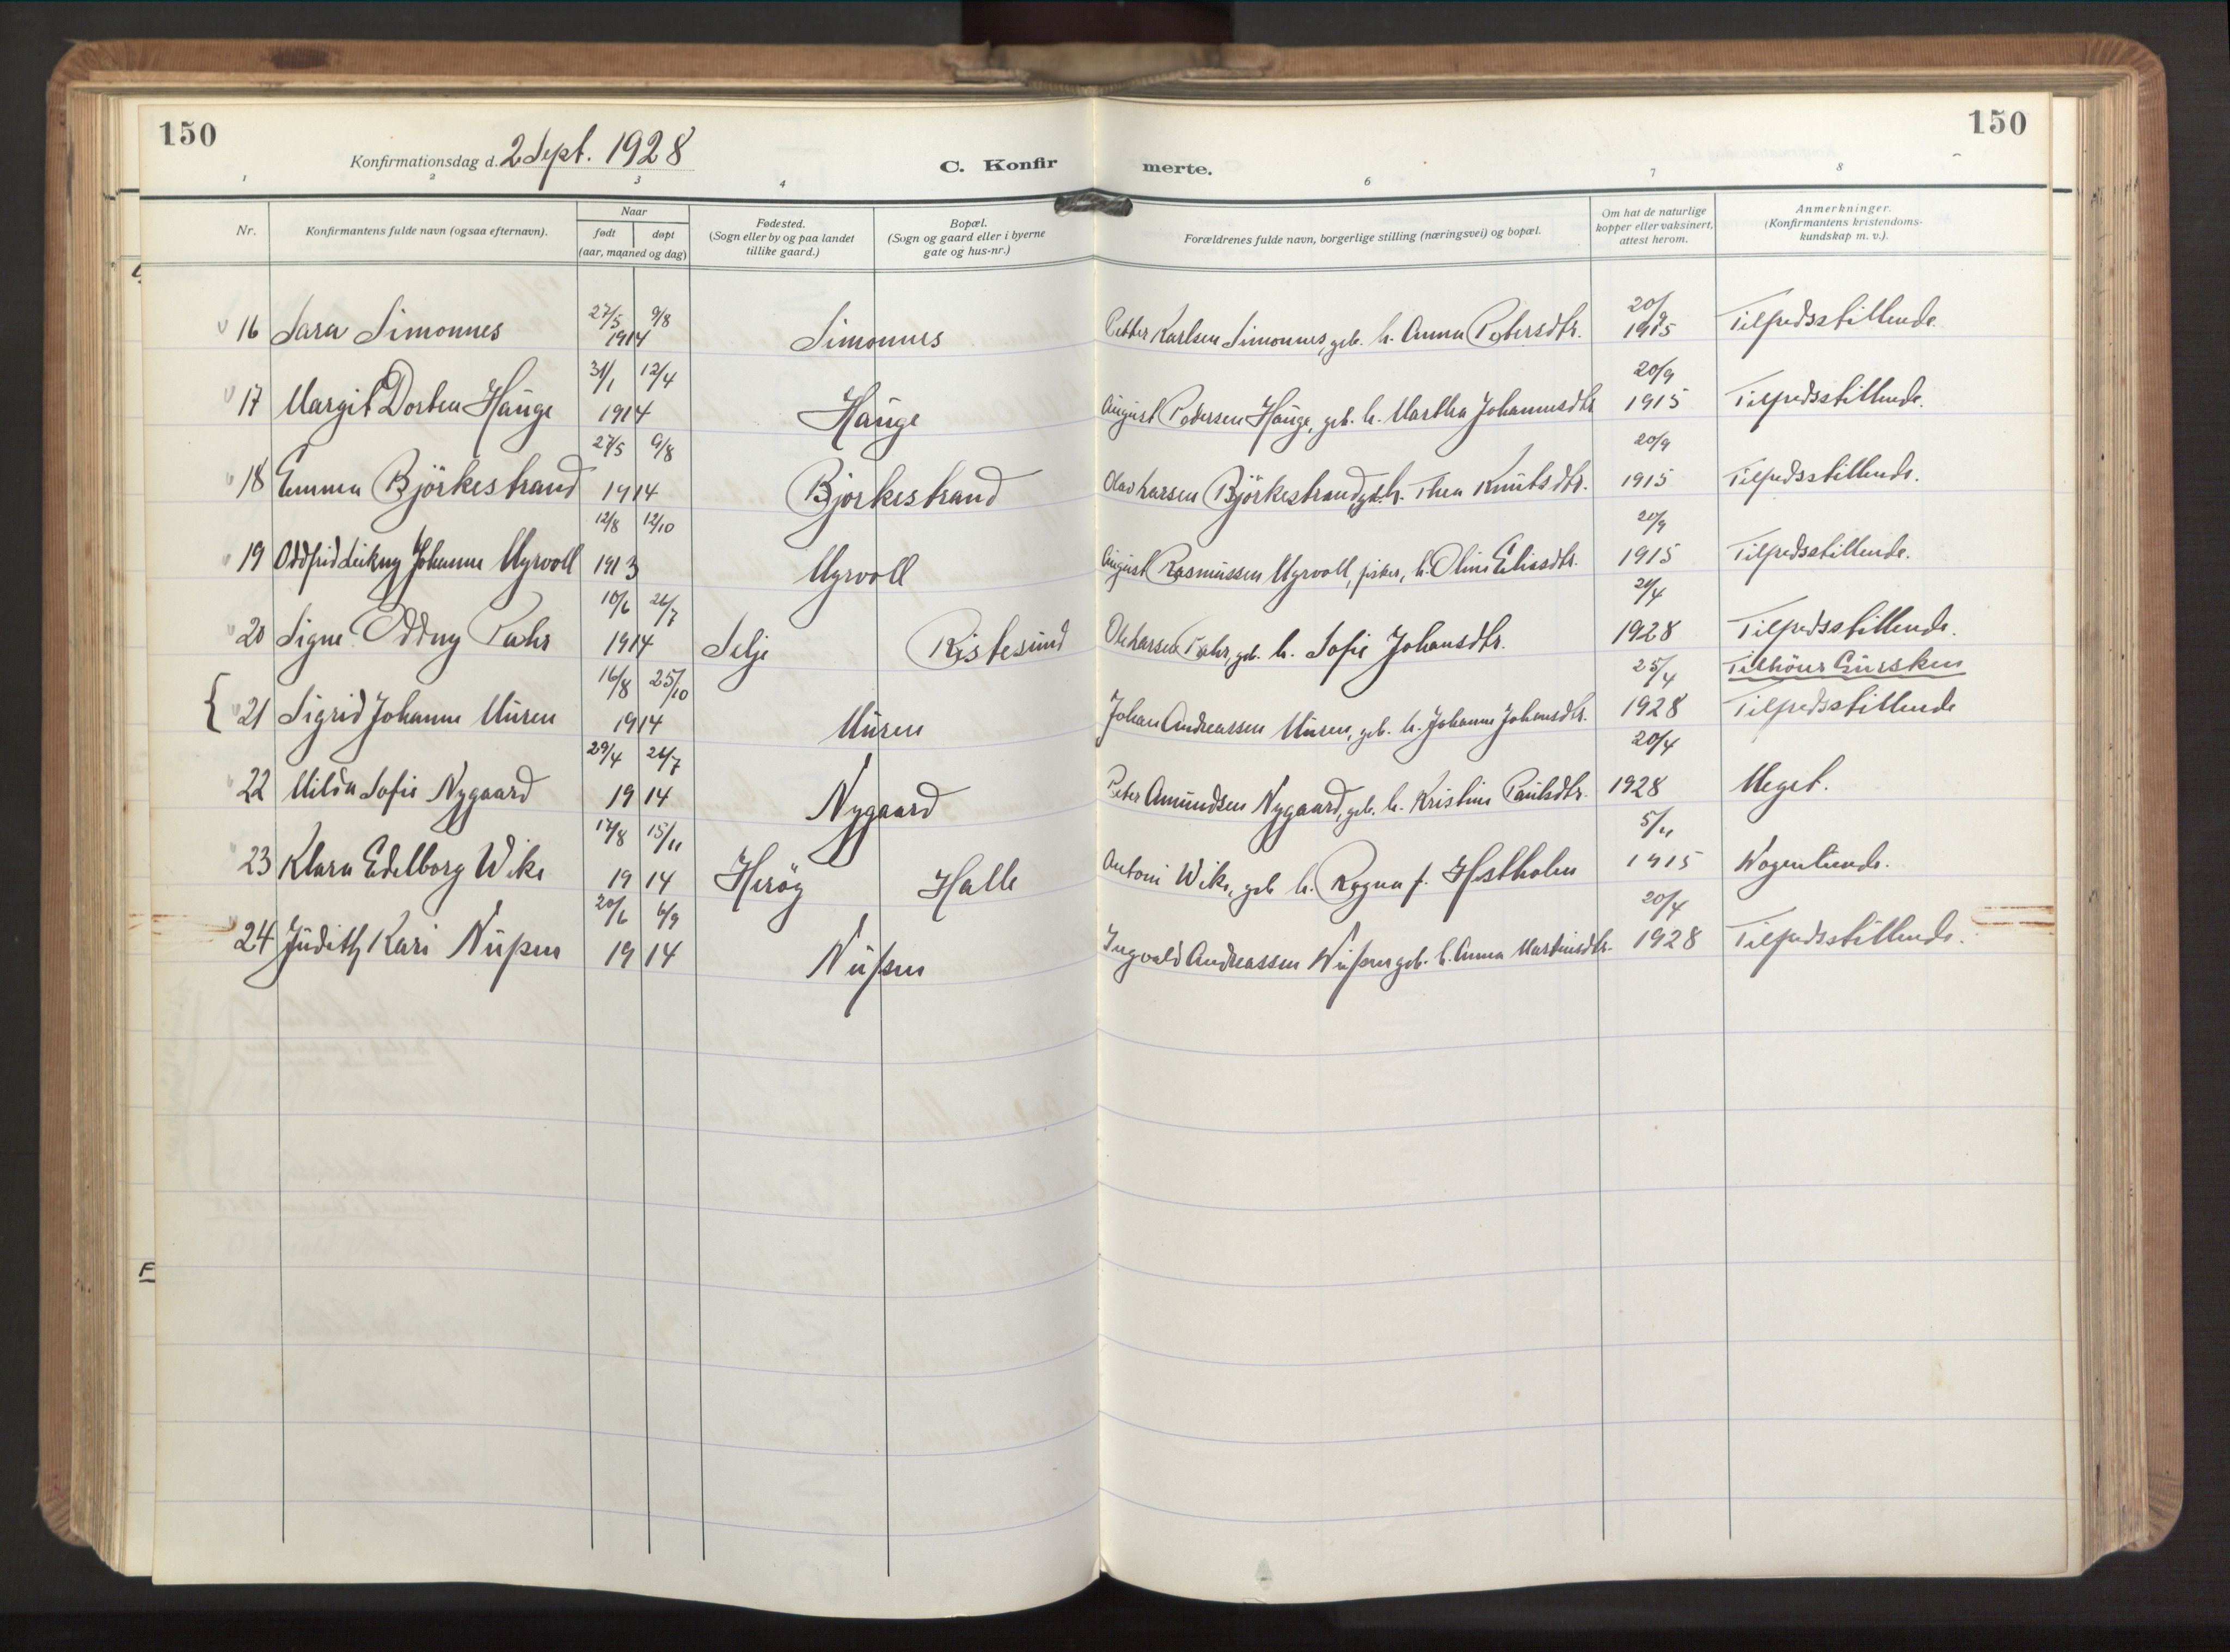 150
150
Konfirmationsdag d. 2 Sept. 1928
C. Konfir merte.
1 2 3 4 6 7 8
Nr. Konfirmantens fulde navn (ogsaa efternavn). Naar født døpt (aar, maaned og dag) Fødested. (Sogn eller by og paa landet tillike gaard.) Bopæl. (Sogn og gaard eller i byerne gate og hus-nr.) Forældrenes fulde navn, borgerlige stilling (næringsvei) og bopæl. Om hat de naturlige kopper eller vaksinert, attest herom. Anmerkninger. (Konfirmantens kristendoms-kundskap m. v.).
16 Sara Simonnes 27/5 9/8 1914 Simonnes Petter Karlsen Simonnes, gb. h. Anna Petersdtr. 20/9 1915 Tilfredsstillende.
17 Margit Dorthea Hauge 31/1 12/4 1914 Hauge August Pedersen Hauge, gb. h. Martha Johannesdtr 20/9 1915 Tilfredsstillende.
18 Emma Björkestrand 27/5 9/8 1914 Bjorkestrand Olav Larsen Björkestrand, gb. h. Thea Knutsdtr. 20/9 1915 Tilfredsstillende.
19 Oddfrid Leikny Johanne Myrvoll 12/8 12/10 1913 Myrvoll August Rasmussen Myrvoll, fisker, h. Oline Eliasdtr. 20/9 1915 Tilfredsstillende.
20 Signe Oddny 10/6 26/7 1914 Selje Ristesund Ole Larsen gb. h. Sofie Johansdtr. 20/4 1928 Tilfredsstillende.
Tilhörer Gursken
21 Sigrid Johanne Muren 16/8 25/10 1914 Muren Johan Andreassen Muren, gb. h. Johanne Johansdtr. 25/4 1928 Tilfredsstillende
22 Milda Sofie Nygaard 29/4 26/7 1914 Nygaard Peter Amundsen Nygaard, gb. h. Kristine Paulsdtr. 20/4 1928 Meget.
23 Klara Edelborg Wike 17/8 15/11 1914 Heröy Halle Antoni Wike, gb h. Ragna f. Hestholm 5/11 1915
24 Judith Kari Nupen 20/6 6/9 1914 Nupen Ingvald Andreassen Nupen gb. h. Anna Martinsdtr. 20/4 1928 Tilfredsstillende.
F